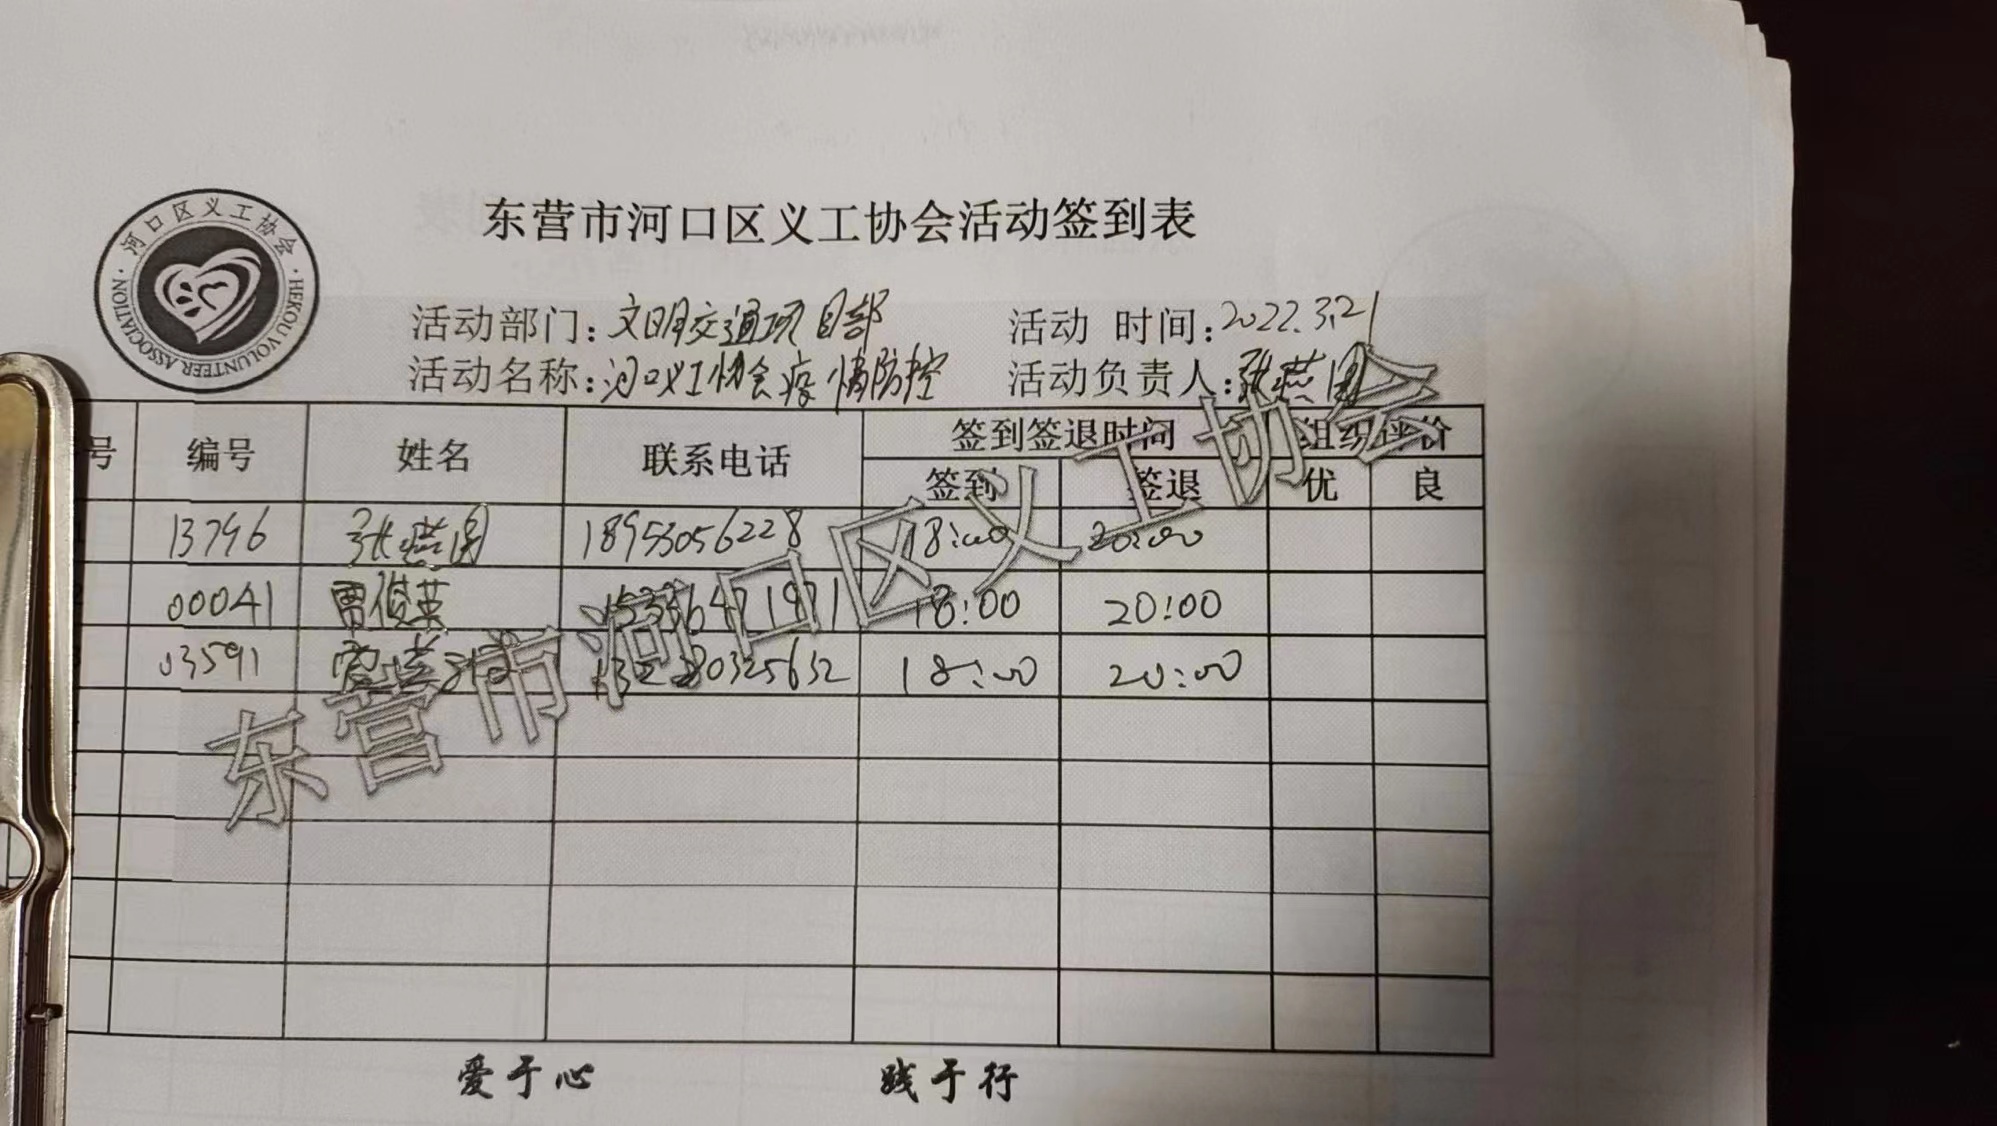 河口区义工协会
HEKOU VOLUNTEER ASSOCIATION
东营市河口区义工协会活动签到表
活动部门：文明交通项目部 活动 时间：2022.3.21
活动名称：河口义工协会疫情防控 活动负责人：张燕
号 编号 姓名 联系电话 签到签退时间 组织评价
签到 签退 优 良
13796 张燕 18953056228 18:00 20:00
00041 贾俊英 18:00 20:00
03591 18:00 20:00
东营市河口区义工协会
爱于心 践于行